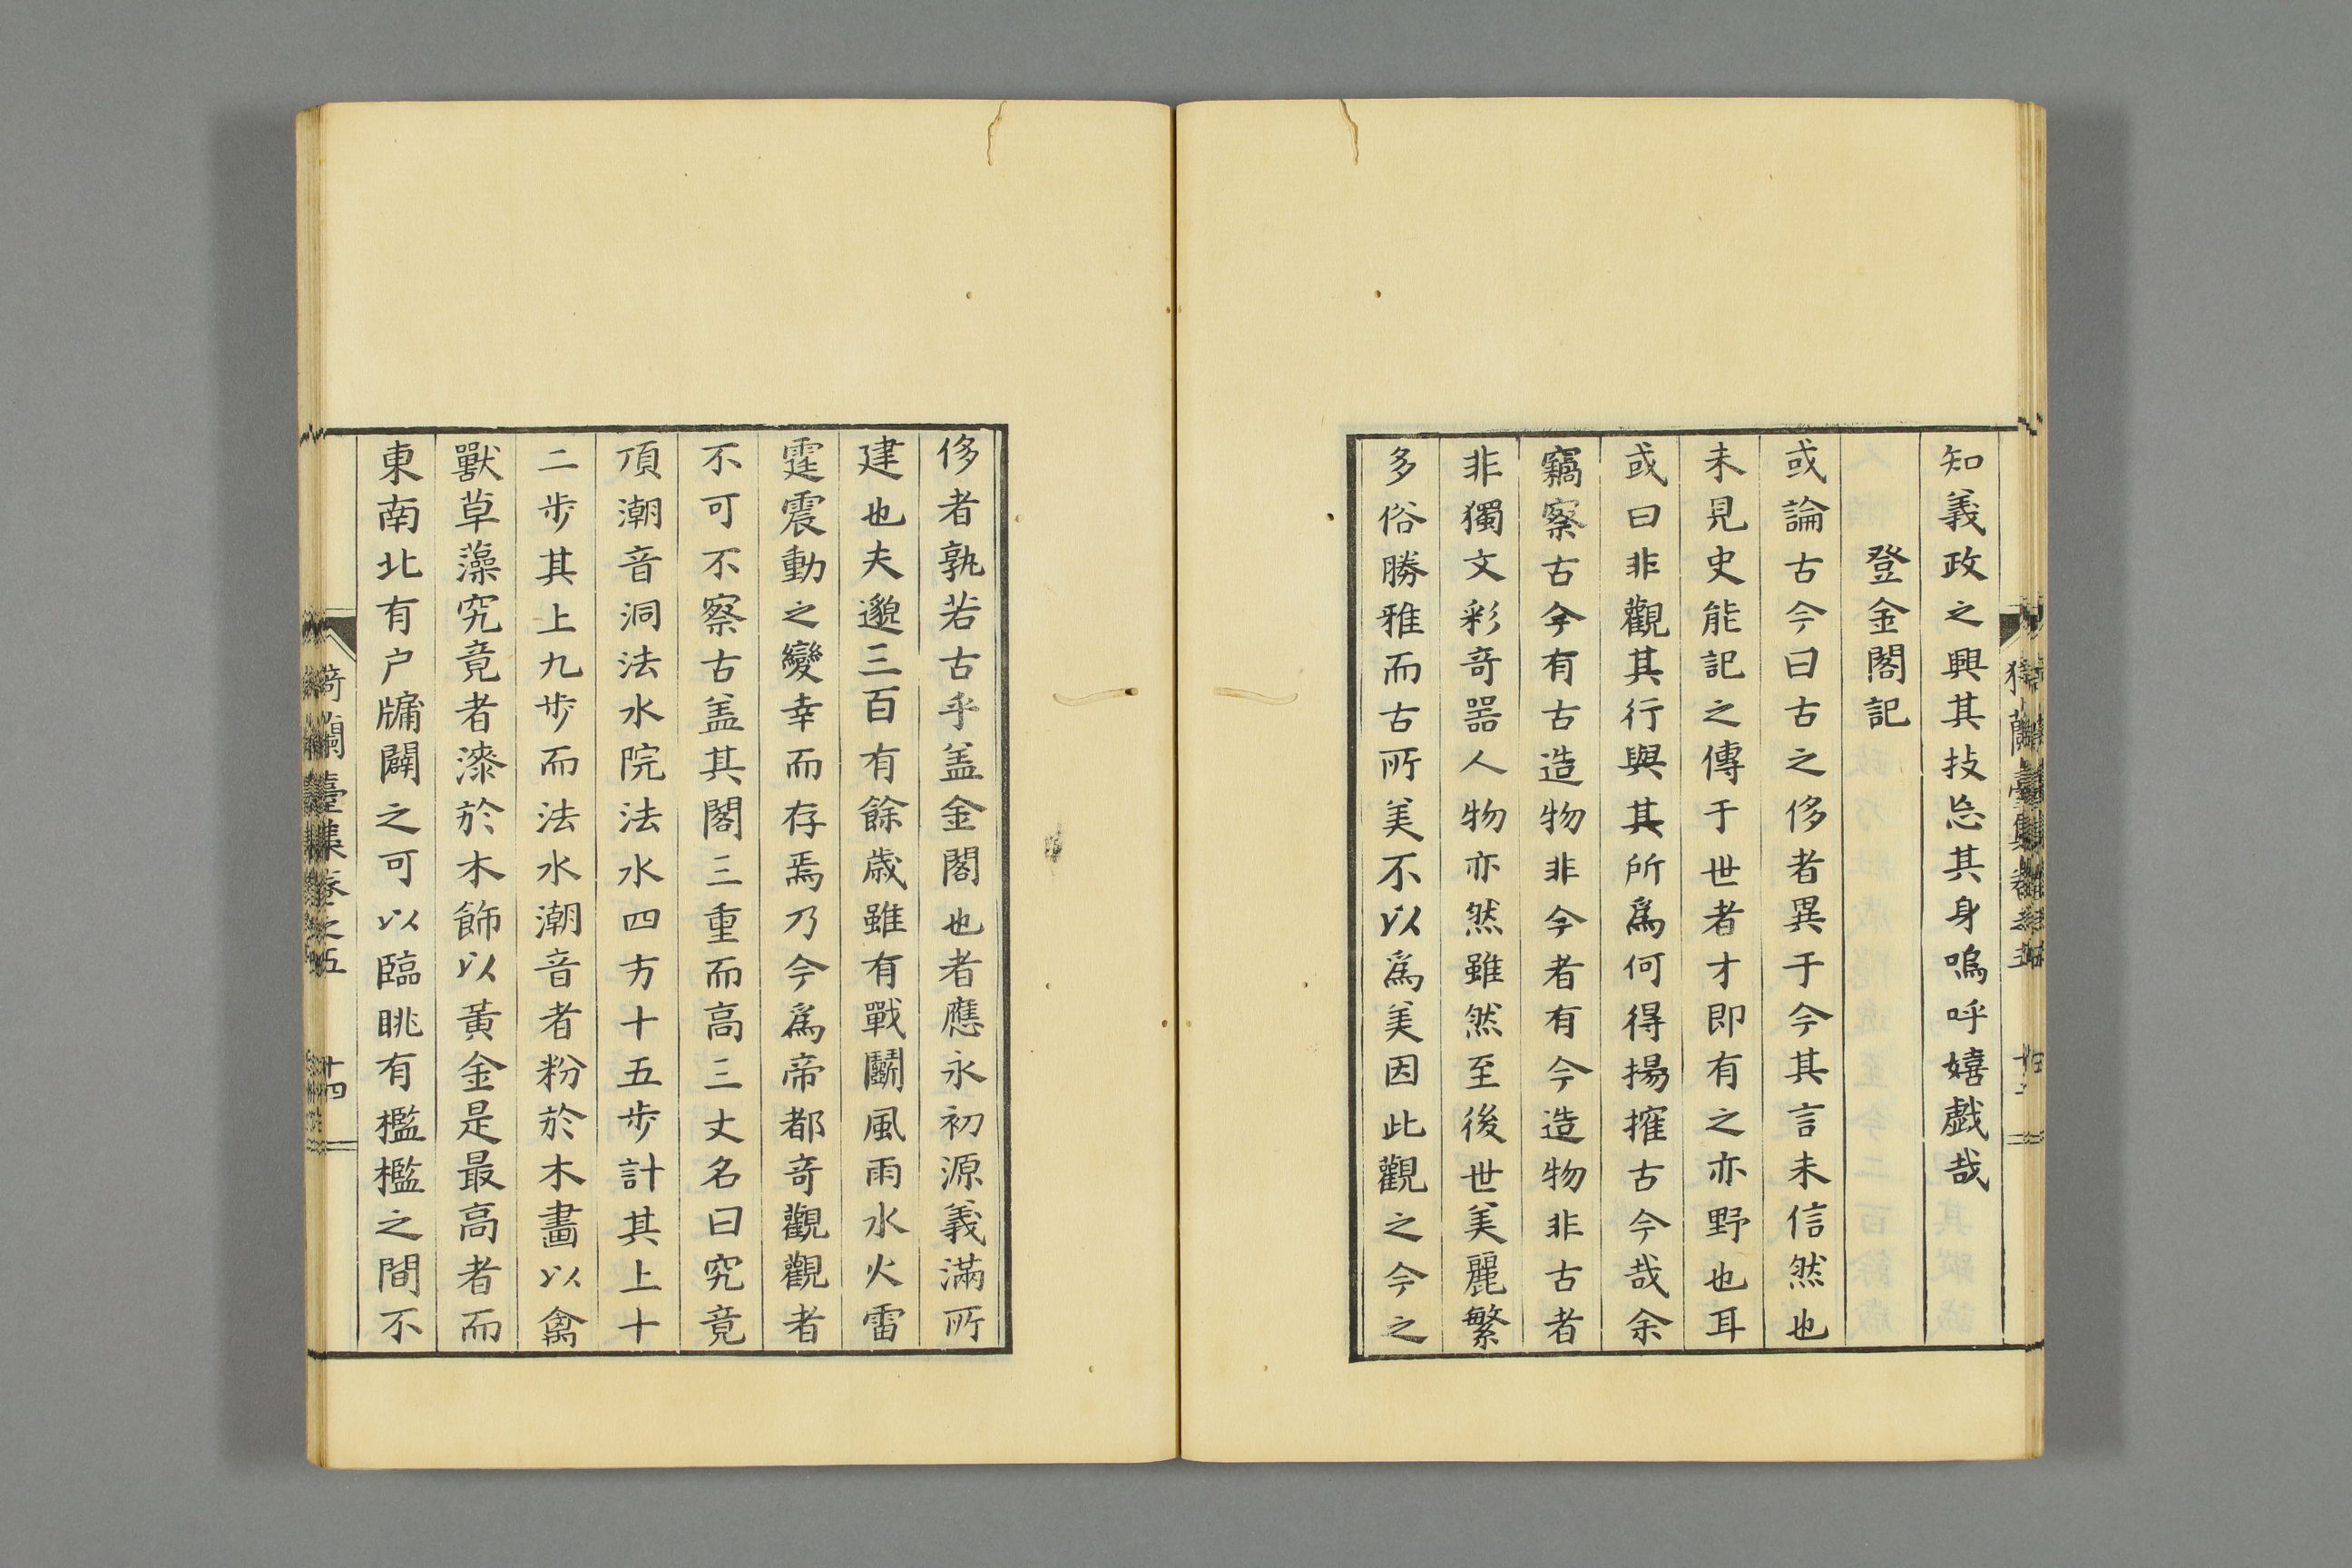 知義政之興其技忘其身嗚呼嬉戯哉
登金閣記
或論古今曰古之侈者異于今其言未信然也
未見史能記之傳于世者才即有之亦野也耳
或曰非觀其行與其所爲何得揚搉古今哉余
竊察古今有古造物非今者有今造物非古者
非獨文彩竒噐人物亦然雖然至後世美麗繁
多俗勝雅而古所美不以爲美因此觀之今之
侈者孰若古乎盖金閣也者應永初源義滿所
建也夫邈三百有餘歳雖有戰鬭風雨水火雷
霆震動之變幸而存焉乃今爲帝都竒觀觀者
不可不察古盖其閣三重而高三丈名曰究竟
頂潮音洞法水院法水四方十五步計其上十
二步其上九步而法水潮音者粉於木畫以禽
獸草藻究竟者漆於木飾以黃金是最高者而
東南北有户牖闢之可以臨眺有檻檻之間不
猗蘭臺集卷之五 十四